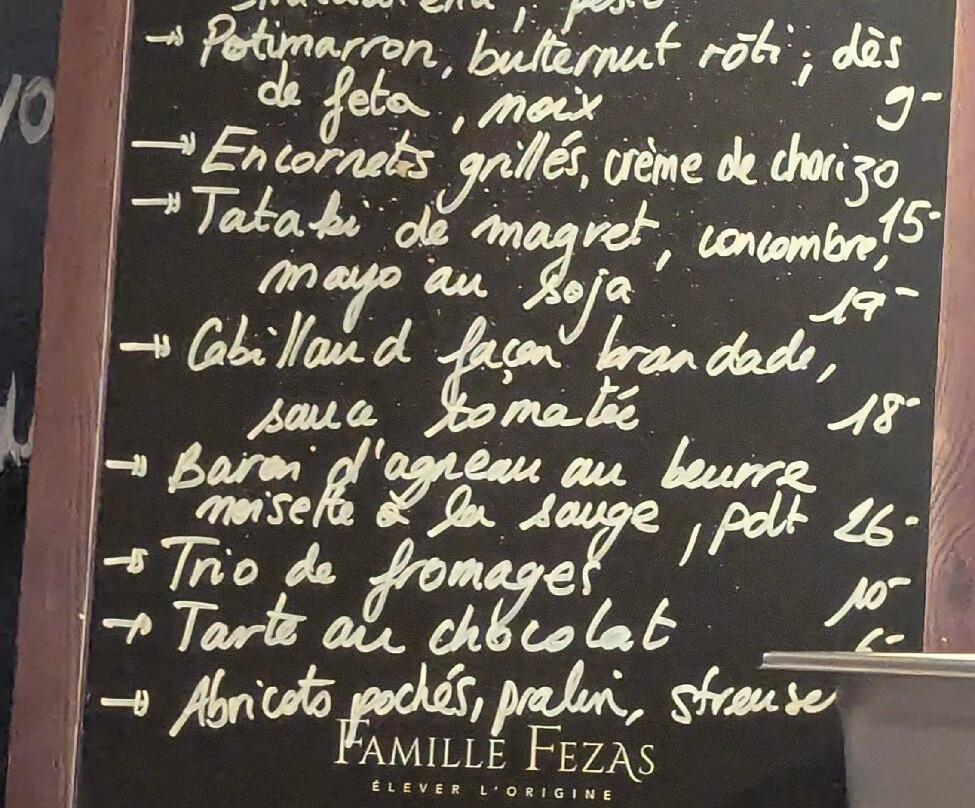 , pesto
→ Potimarron, butternut rôti ; dès
de feta , noix 9-
→ Encornets grillés, crème de chorizo
15-
→ Tataki de magret, concombre,
mayo au soja 19-
→ Cabillaud façon brandade,
sauce tomatée 18-
→ Baron d'agneau au beurre
noisette à la sauge , pdt 26-
→ Trio de fromages
10-
→ Tarte au chocolat
→ Abricots pochés, pralin,
FAMILLE FEZAS
ÉLEVER L'ORIGINE